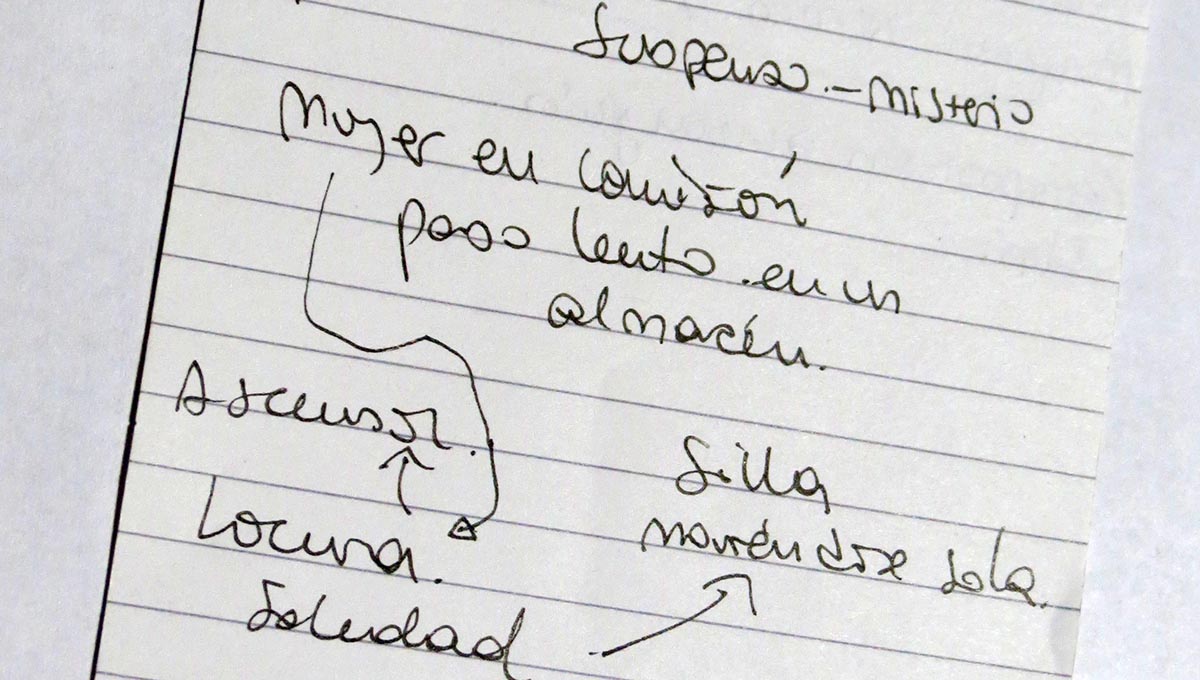 Suspenso.- Misterio
Mujer en camisón
paso lento en un
almacén.
Ascensor.
Silla
moviéndose sola.
Locura.
Soledad